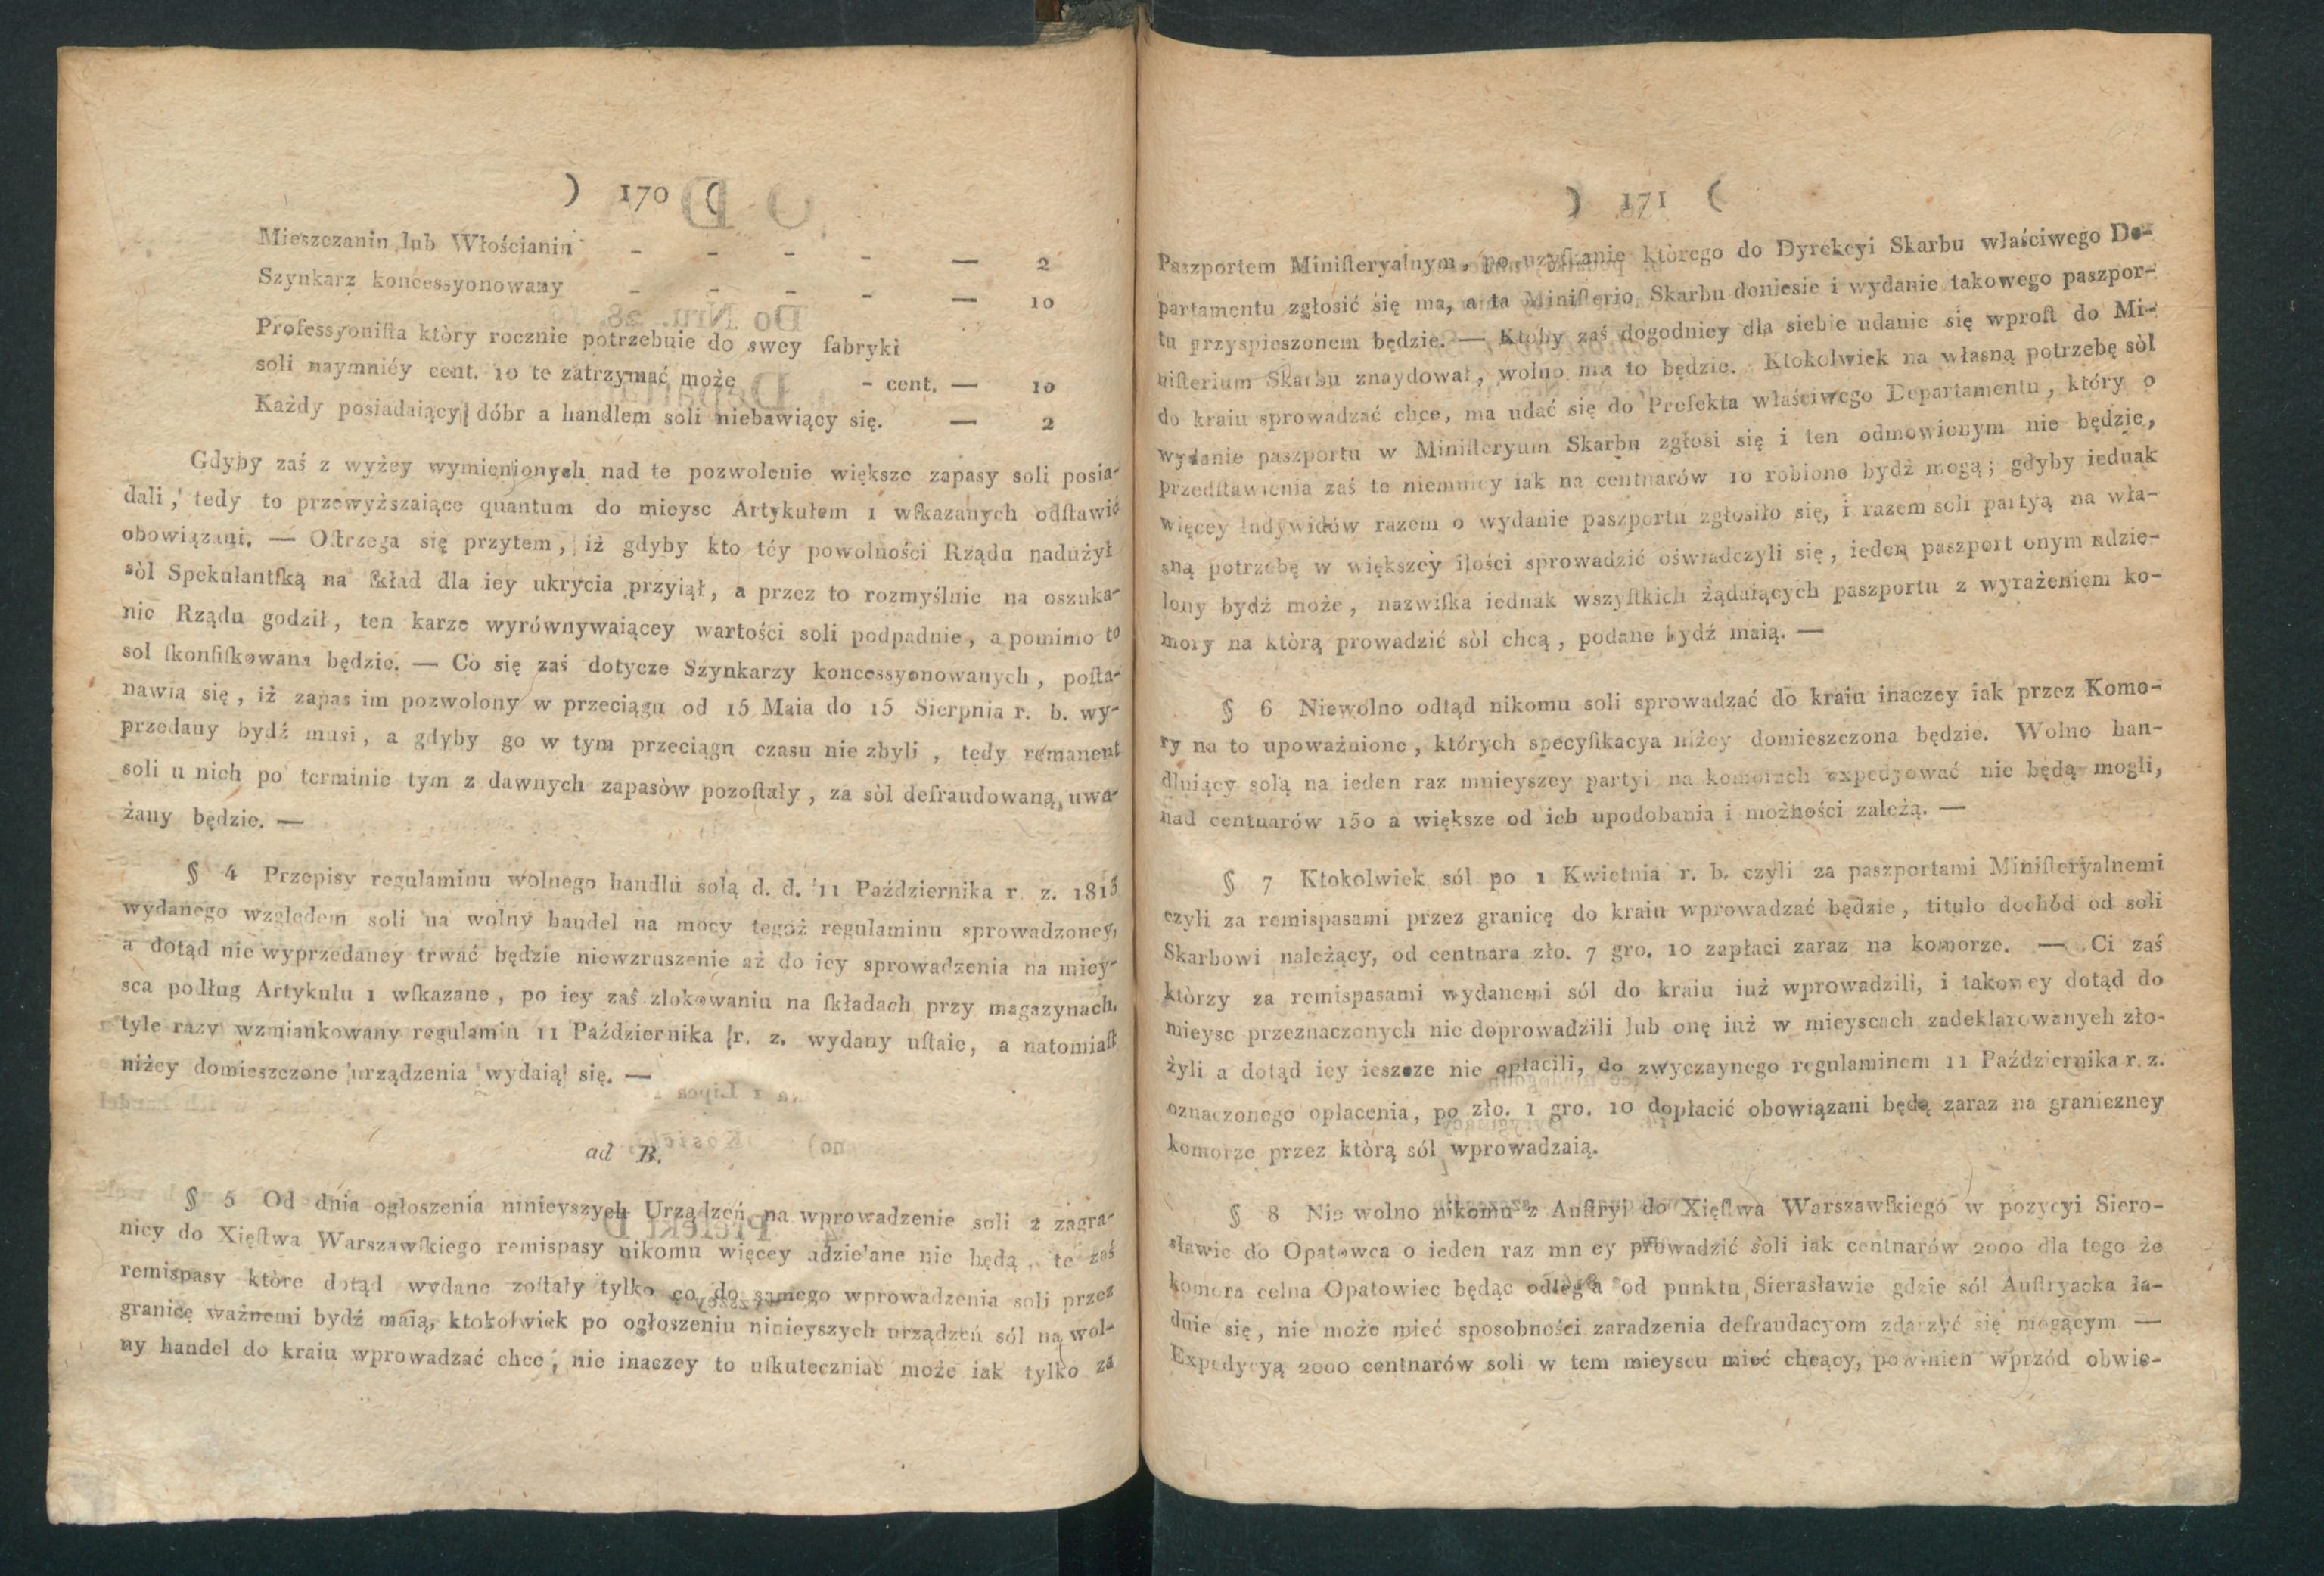 ) 170 (
Mieszczanin lub Włościanin - - - - — 2
Szynkarz koncessyonowany - - - - — 10
Professyoniſta ktòry rocznie potrzebuie do swey fabryki
soli naymniéy cent. 10 te zatrzymać może - cent. — 10
Każdy posiadaiący dóbr a handlem soli niebawiący się. — 2
Gdyby zaś z wyżey wymienionych nad te pozwolenie większe zapasy soli posia-
dali, tedy to przewyższaiące quantum do mieysc Artykułem 1 wſkazanych odſtawić
obowiązani. — Oſtrzega się przytem, iż gdyby kto téy powolności Rządu nadużył
sòl Spekulantſką na ſkład dla iey ukrycia przyiął, a przez to rozmyślnie na oszuka-
nie Rządu godził, ten karze wyrównywaiącey wartości soli podpadnie, a pomimo to
sol ſkonfiſkowana będzie. — Co się zaś dotycze Szynkarzy koncessyonowanych, poſta-
nawia się, iż zapas im pozwolony w przeciągu od 15 Maia do 15 Sierpnia r. b. wy-
przedany bydź musi, a gdyby go w tym przeciągu czasu nie zbyli, tedy remanent
soli u nich po terminie tym z dawnych zapasòw pozoſtały, za sòl defraudowaną uwa-
żany będzie. —
§ 4 Przepisy regulaminu wolnego handlu solą d. d. 11 Października r. z. 1813
wydanego względem soli na wolny handel na mocy tegoż regulaminu sprowadzoney,
a dotąd nie wyprzedaney trwać będzie niewzruszenie aż do iey sprowadzenia na miey-
sca podług Artykułu 1 wſkazane, po iey zaś zlokowaniu na ſkładach przy magazynach,
tyle razy wzmiankowany regulamin 11 Października r. z. wydany uſtaie, a natomiaſt
niżey domieszczone urządzenia wydaią się. —
ad B.
§ 5 Od dnia ogłoszenia ninieyszych Urządzeń na wprowadzenie soli z zagra-
nicy do Xięſtwa Warszawſkiego remispasy nikomu więcey udzielane nie będą, te zaś
remispasy które dotąd wydane zoſtały tylko co do samego wprowadzenia soli przez
granicę ważnemi bydź maią, ktokolwiek po ogłoszeniu ninieyszych urządzeń sól na wol-
ny handel do kraiu wprowadzać chce, nie inaczey to uſkuteczniać może iak tylko za
) 171 (
Paszportem Miniſteryalnym, po uzyſkanie ktòrego do Dyrekcyi Skarbu właściwego De-
partamentu zgłosić się ma, a ta Miniſterio Skarbu doniesie i wydanie takowego paszpor-
tu przyspieszonem będzie. — Ktoby zaś dogodniey dla siebie udanie się wproſt do Mi-
niſterium Skarbu znaydował, wolno ma to będzie. Ktokolwiek na własną potrzebę sòl
do kraiu sprowadzać chce, ma udać się do Prefekta właściwego Departamentu, który o
wydanie paszportu w Miniſteryum Skarbu zgłosi się i ten odmowionym nie będzie,
przedſtawienia zaś te niemniey iak na centnarów 10 robione bydź mogą; gdyby iednak
więcey Indywidów razem o wydanie paszportu zgłosiło się, i razem soli partyą na wła-
sną potrzebę w większey ilości sprowadzić oświadczyli się, ieden paszport onym udzie-
lony bydź może, nazwiſka iednak wszyſtkich żądaiących paszportu z wyrażeniem ko-
mory na ktòrą prowadzić sòl chcą, podane bydź maią. —
§ 6 Niewolno odtąd nikomu soli sprowadzać do kraiu inaczey iak przez Komo-
ry na to upoważnione, których specyfikacya niżey domieszczona będzie. Wolno han-
dluiący solą na ieden raz mnieyszey partyi na komorach expedyować nie będą mogli,
nad centnarów 150 a większe od ich upodobania i możności zależą. —
§ 7 Ktokolwiek sól po 1 Kwietnia r. b. czyli za paszportami Miniſteryalnemi
czyli za remispasami przez granicę do kraiu wprowadzać będzie, titulo dochód od soli
Skarbowi należący, od centnara zło. 7 gro. 10 zapłaci zaraz na komorze. — Ci zaś
ktòrzy za remispasami wydanemi sól do kraiu iuż wprowadzili, i takowey dotąd do
mieysc przeznaczonych nie doprowadzili lub onę iuż w mieyscach zadeklarowanych zło-
żyli a dotąd iey ieszcze nie opłacili, do zwyczaynego regulaminem 11 Października r. z.
oznaczonego opłacenia, po zło. 1 gro. 10 dopłacić obowiązani będą zaraz na graniczney
komorze przez ktòrą sól wprowadzaią.
§ 8 Nie wolno nikomu z Auſtryi do Xięſtwa Warszawſkiego w pozycyi Siero-
sławie do Opatowca o ieden raz mn ey prowadzić soli iak centnarów 2000 dla tego że
komora celna Opatowiec będąc odległa od punktu Sierasławie gdzie sól Auſtryacka ła-
duie się, nie może mieć sposobności zaradzenia defraudacyom zdarzyć się mogącym —
Expedycyą 2000 centnarów soli w tem mieyscu mieć chcący, powinien wprzód obwie-